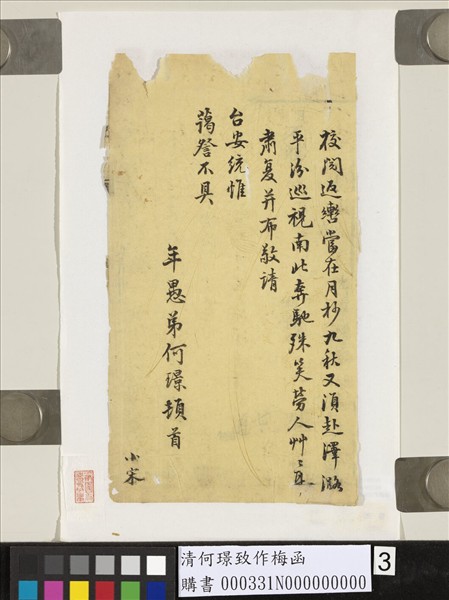 校閱返轡當在月杪九秋又須赴澤潞
平汾巡視南北奔馳殊笑勞人艸艸耳
肅复并布敬請
台安統惟
藹詧不具
年愚弟何璟頓首
小宋
清何璟致作梅函
購書 000331N000000000
3